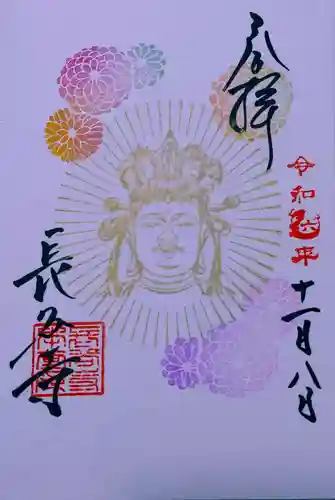 奉拝
令和六年
十一月八日
長谷寺